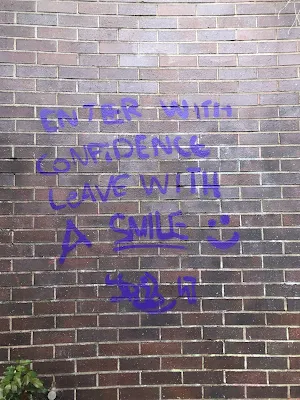 ENTER WITH
CONFIDENCE
LEAVE WITH
A SMILE